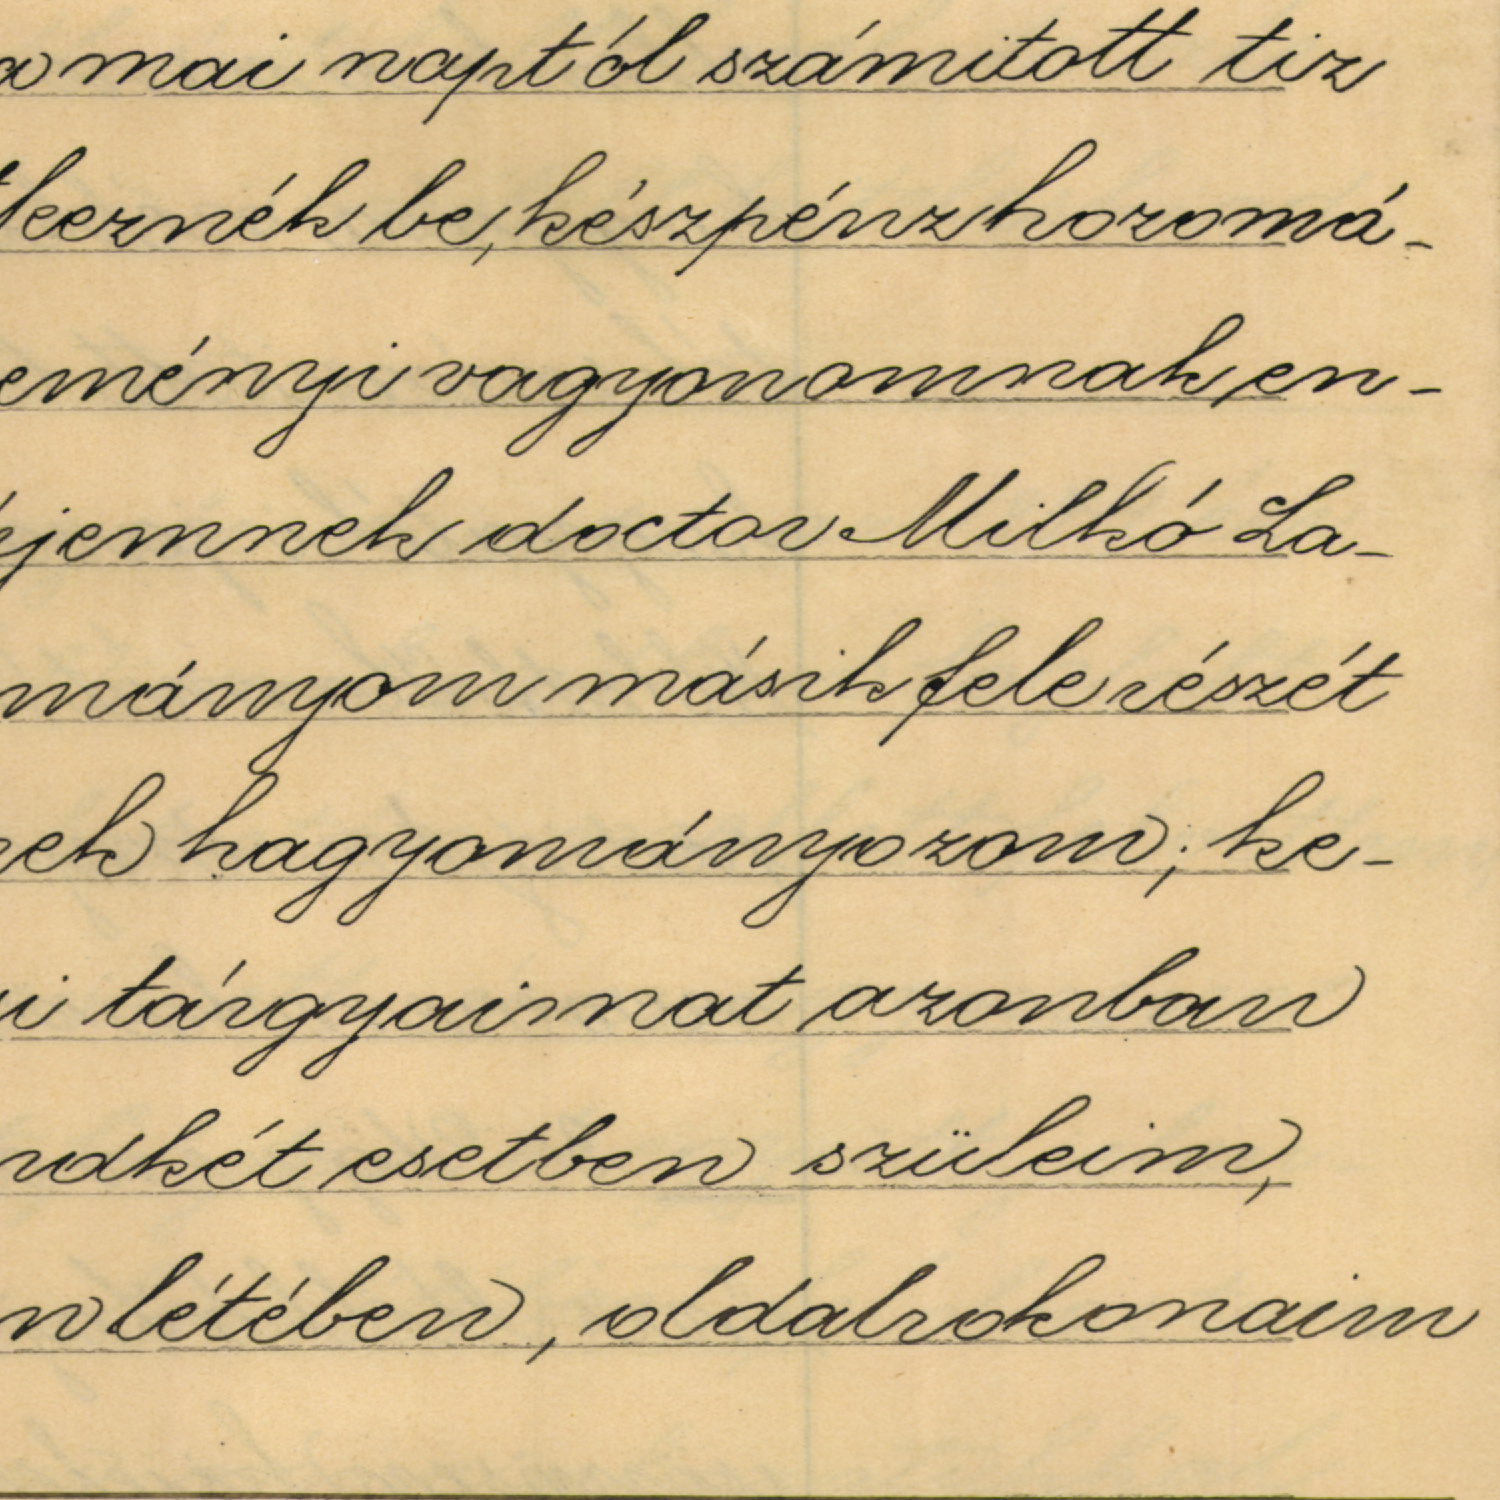 a mai naptól számitott tiz
tkeznék be, készpénzhozomá-
eményi vagyonomnak en-
jemnek doctor Milkó La-
mányom másik fele részét
nek hagyományozom; ke-
i tárgyaimat azonban
ndkét esetben szüleim,
n létében, oldalrokonaim